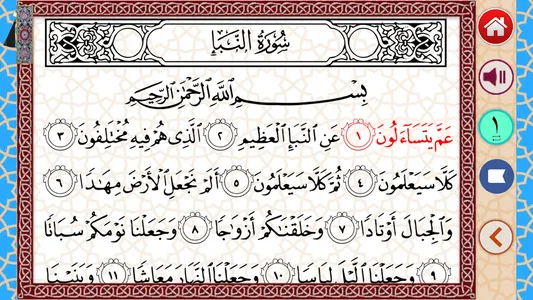 سُورَةُ النَّبَإِ
بِسْمِ اللَّهِ الرَّحْمَٰنِ الرَّحِيمِ
عَمَّ يَتَسَآءَلُونَ ١ عَنِ النَّبَإِ الْعَظِيمِ ٢ الَّذِى هُمْ فِيهِ مُخْتَلِفُونَ ٣
كَلَّا سَيَعْلَمُونَ ٤ ثُمَّ كَلَّا سَيَعْلَمُونَ ٥ أَلَمْ نَجْعَلِ الْأَرْضَ مِهَٰدًا ٦
وَالْجِبَالَ أَوْتَادًا ٧ وَخَلَقْنَٰكُمْ أَزْوَٰجًا ٨ وَجَعَلْنَا نَوْمَكُمْ سُبَاتًا
٩ وَجَعَلْنَا الَّيْلَ لِبَاسًا ١٠ وَجَعَلْنَا النَّهَارَ مَعَاشًا ١١ وَبَنَيْنَا
١